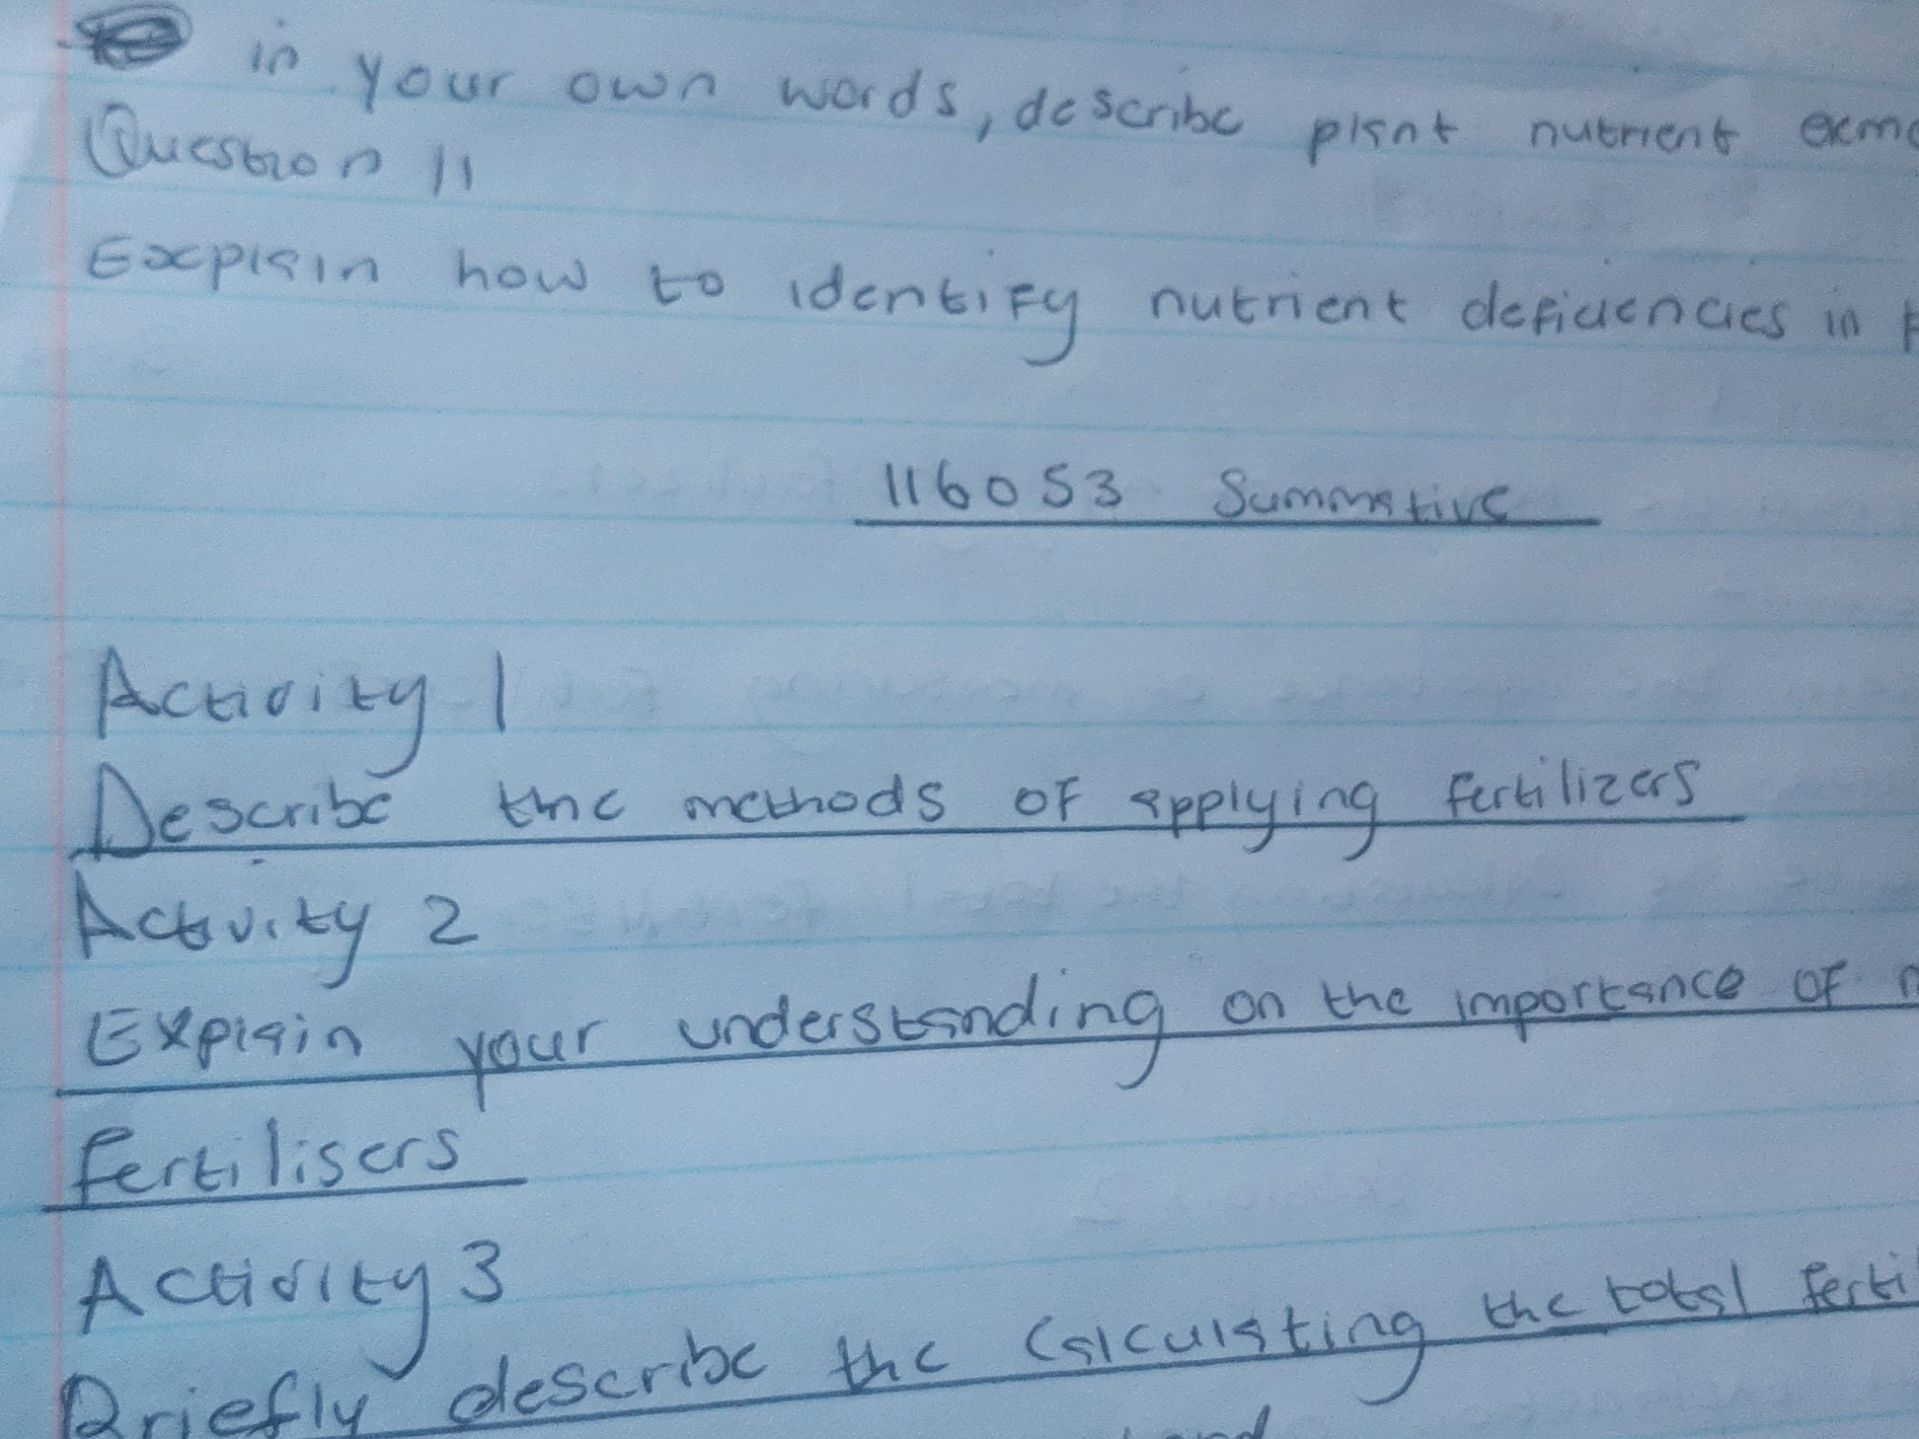 in your own words, describe plant nutrient
Question 11
Explain how to identify nutrient deficiencies in
116053 Summative
Activity 1
Describe the methods of applying fertilizers
Activity 2
Explain your understanding on the importance of
fertilisers
Activity 3
Briefly describe the calculating the total ferti
and